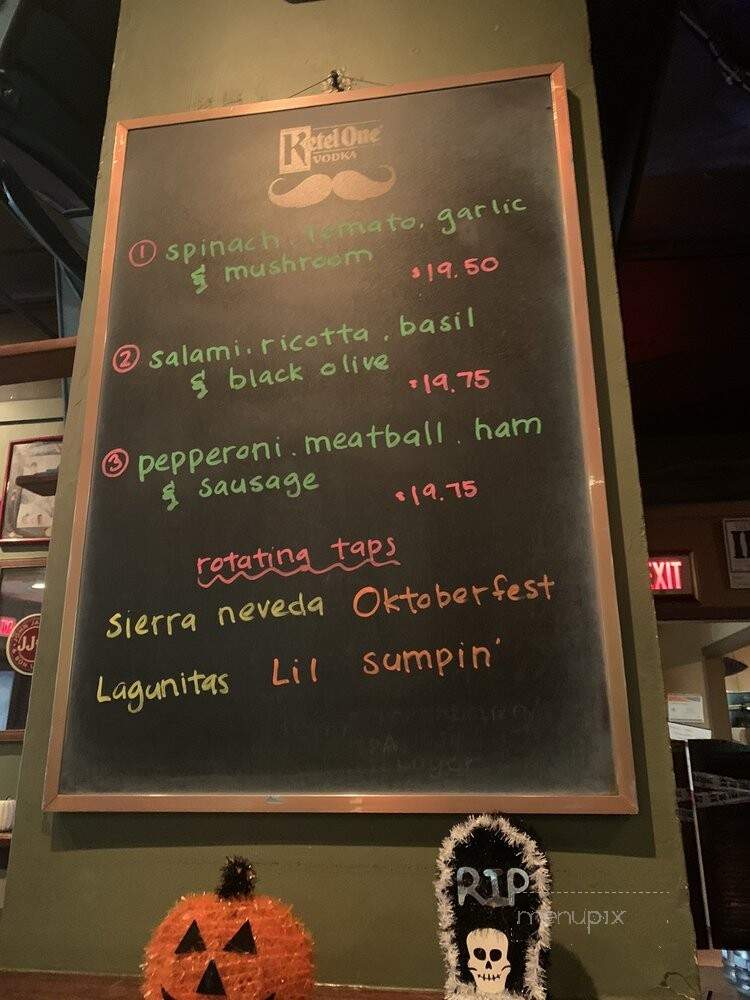 Ketel One
VODKA
① spinach. tomato. garlic
& mushroom
$19.50
② salami. ricotta. basil
& black olive
$19.75
③ pepperoni. meatball. ham
& sausage
$19.75
rotating taps
Sierra neveda Oktoberfest
Lagunitas Lil sumpin'
EXIT
JJ
RIP
menupix